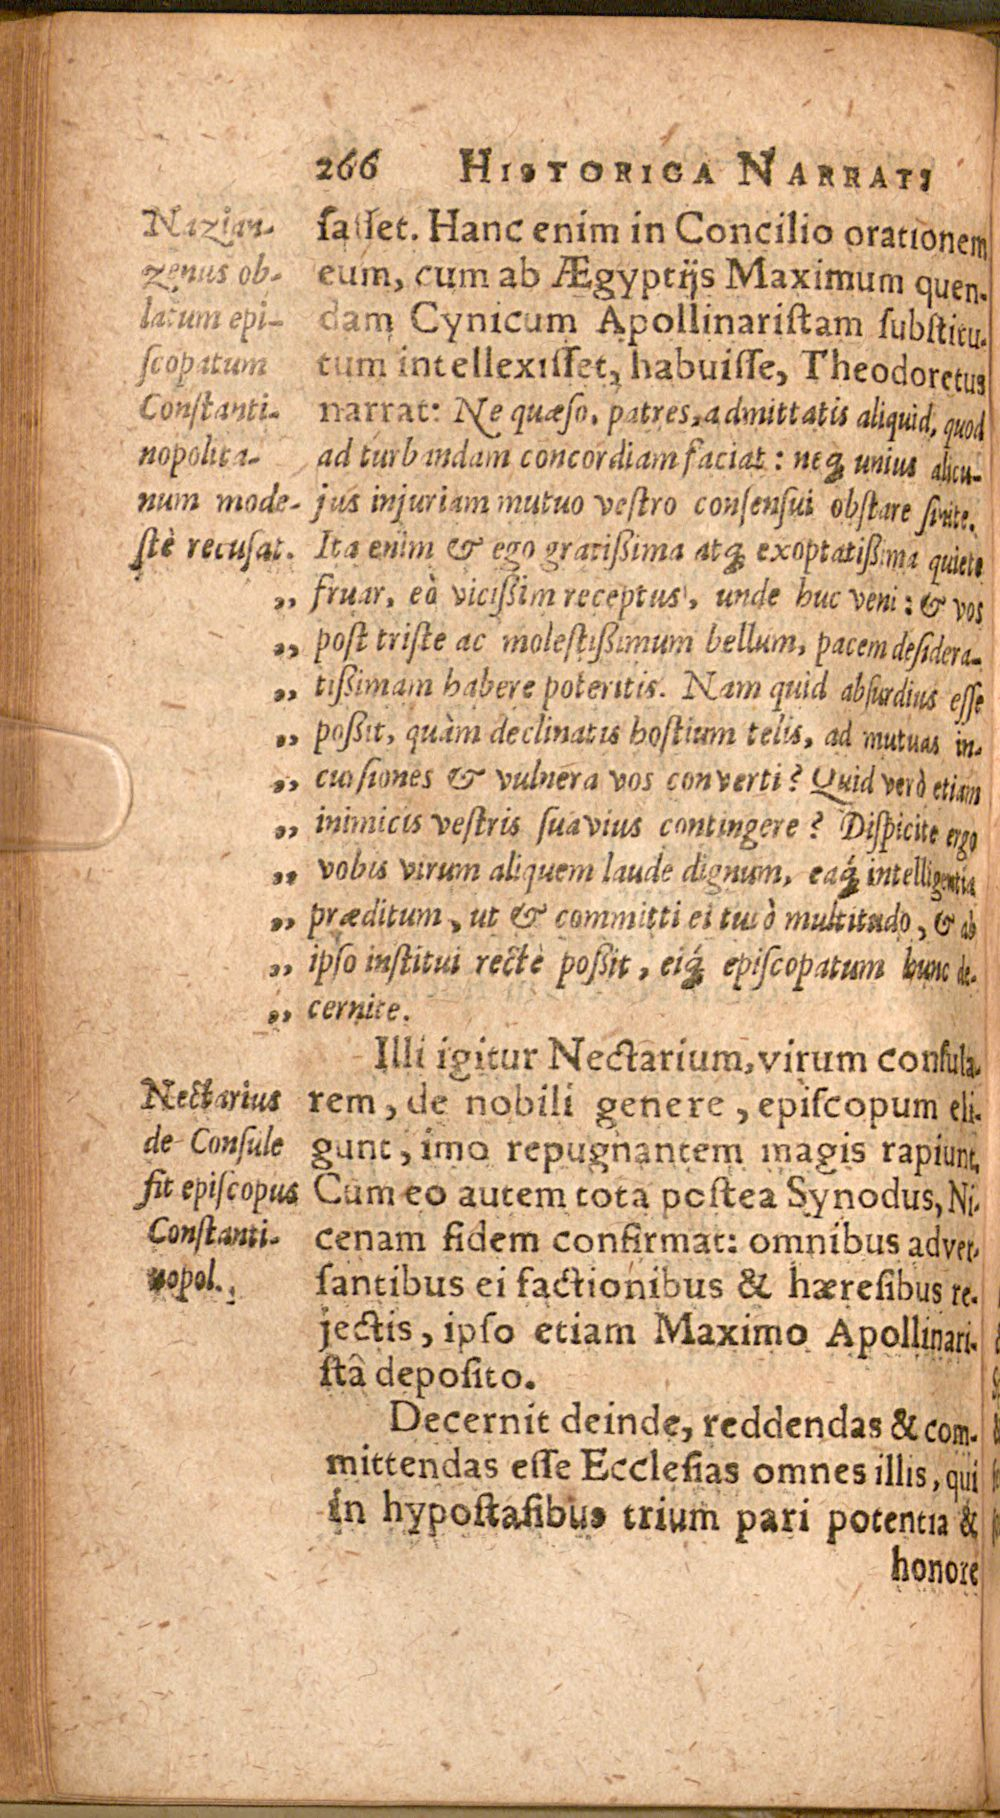 266 HISTORICA NARRATI
Nazian-
zenus ob-
latum epi-
scopatum
Constanti-
nopolita-
num mode-
stè recusat.
sasset. Hanc enim in Concilio orationem
eum, cum ab Ægyptijs Maximum quen-
dam Cynicum Apollinaristam substitu-
tum intellexisset, habuisse, Theodoretus
narrat: Ne quæso, patres, admittatis aliquid, quod
ad turbandam concordiam faciat: neq́ unius alicu-
jus injuriam mutuo vestro consensui obstare sinite.
Ita enim & ego gratißima atq́ exoptatißima quiete
„ fruar, eò vicißim receptus, unde huc veni: & vos
„ post triste ac molestißimum bellum, pacem desidera-
„ tißimam habere poteritis. Nam quid absurdius esse
„ poßit, quàm declinatis hostium telis, ad mutuas in-
„ cursiones & vulnera vos converti? Quid verò etiam
„ inimicis vestris suavius contingere? Dispicite ergo
„ vobis virum aliquem laude dignum, eaq́ intelligentia
„ præditum, ut & committi ei tutò multitudo, & ab
„ ipso institui rectè poßit, eiq́ episcopatum hunc de-
„ cernite.
Illi igitur Nectarium, virum consula-
rem, de nobili genere, episcopum eli-
gunt, imo repugnantem magis rapiunt.
Cum eo autem tota postea Synodus, Ni-
cenam fidem confirmat: omnibus adver-
santibus ei factionibus & hæresibus re-
jectis, ipso etiam Maximo Apollinari-
stâ deposito.
Nectarius
de Consule
fit episcopus
Constanti-
nopol.
Decernit deinde, reddendas & com-
mittendas esse Ecclesias omnes illis, qui
in hypostasibus trium pari potentia &
honore